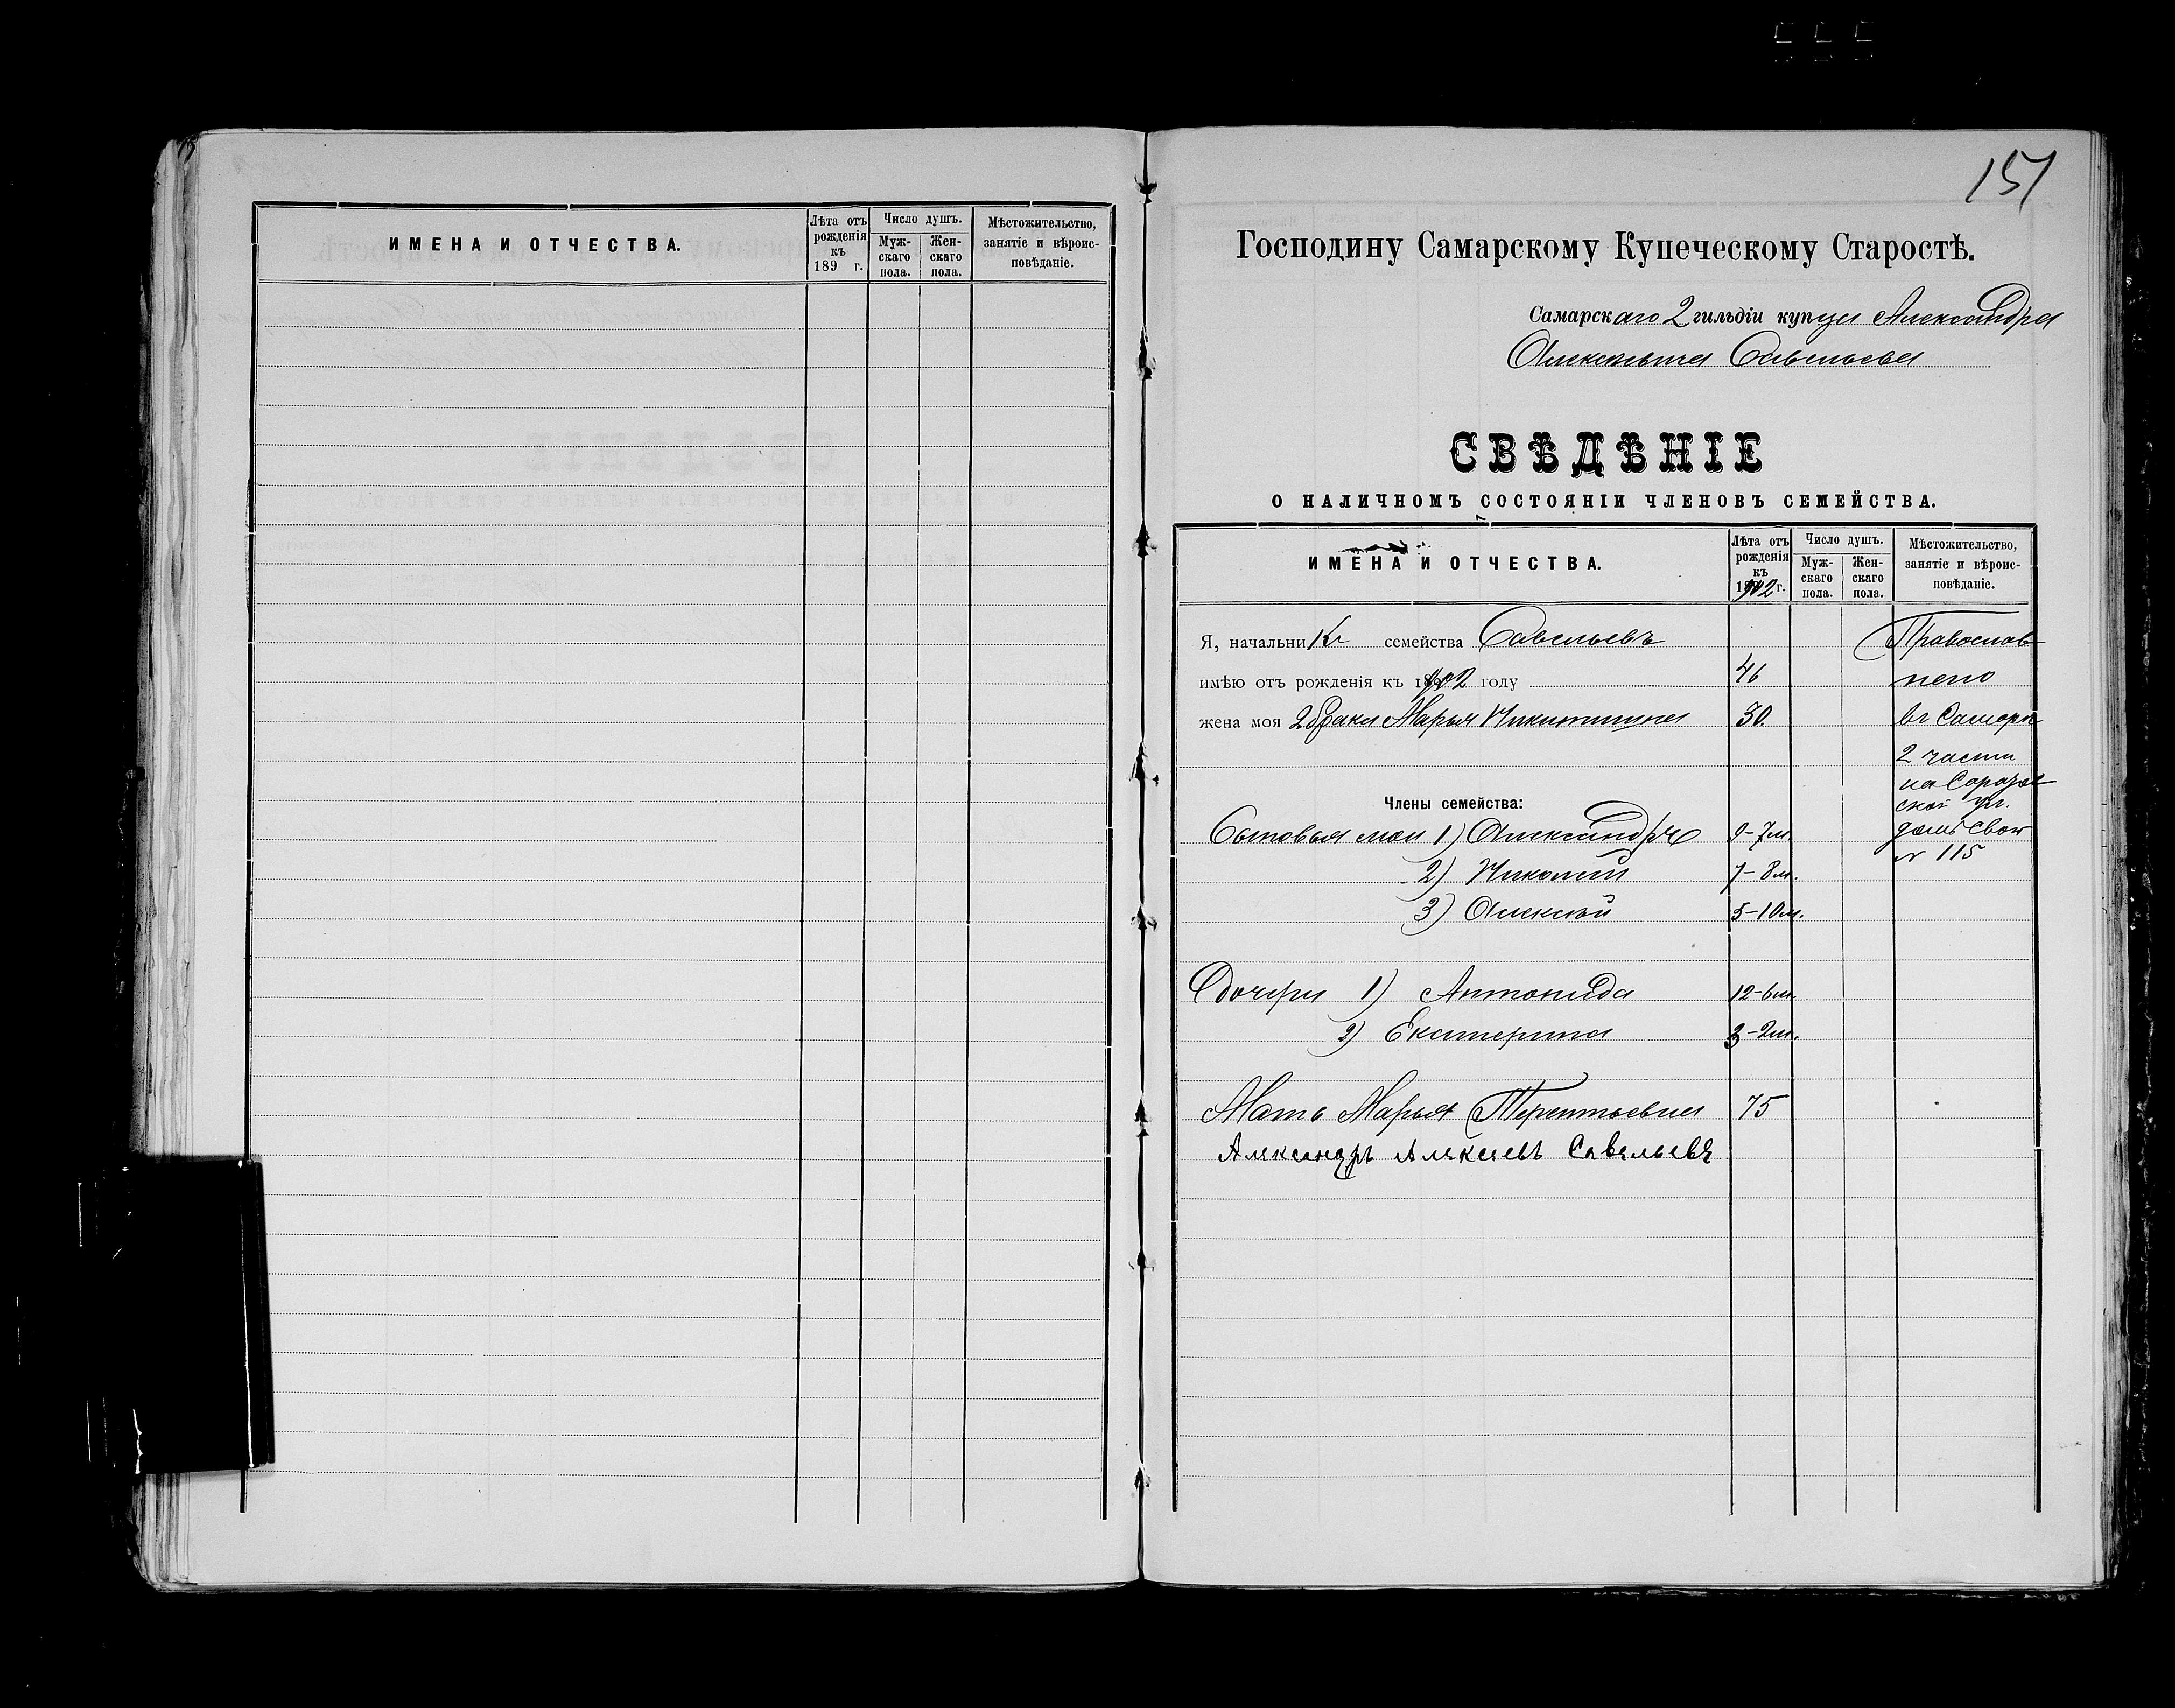 ИМЕНА И ОТЧЕСТВА.
Лѣта отъ рожденія къ 189 г.
Число душъ.
Мужскаго пола.
Женскаго пола.
Мѣстожительство, занятіе и вѣроисповѣданіе.
151
Господину Самарскому Купеческому Старостѣ.
Самарскаго 2 гильдіи купца Александра
Алексѣева Савельева
СВѢДѢНІЕ
О НАЛИЧНОМЪ СОСТОЯНІИ ЧЛЕНОВЪ СЕМЕЙСТВА.
ИМЕНА И ОТЧЕСТВА.
Лѣта отъ рожденія къ 1902 г.
Число душъ.
Мужскаго пола.
Женскаго пола.
Мѣстожительство, занятіе и вѣроисповѣданіе.
Я, начальникъ семейства Савельевъ Православ
имѣю отъ рожденія къ 1902 году 46
жена моя 2 брака Марья Никитишна 30. въ Самарѣ
2 части
на
ской ул.
Члены семейства:
Сыновья мои 1) Александръ 9-7м. домъ свой
№ 115
2) Николай 7-8м.
3) Алексѣй 5-10м.
Дочери 1) Антонида 12-6м.
2) Екатерина 3-2м.
Мать Марья Терентьевна 75
Александръ Алексеевъ Савельевъ